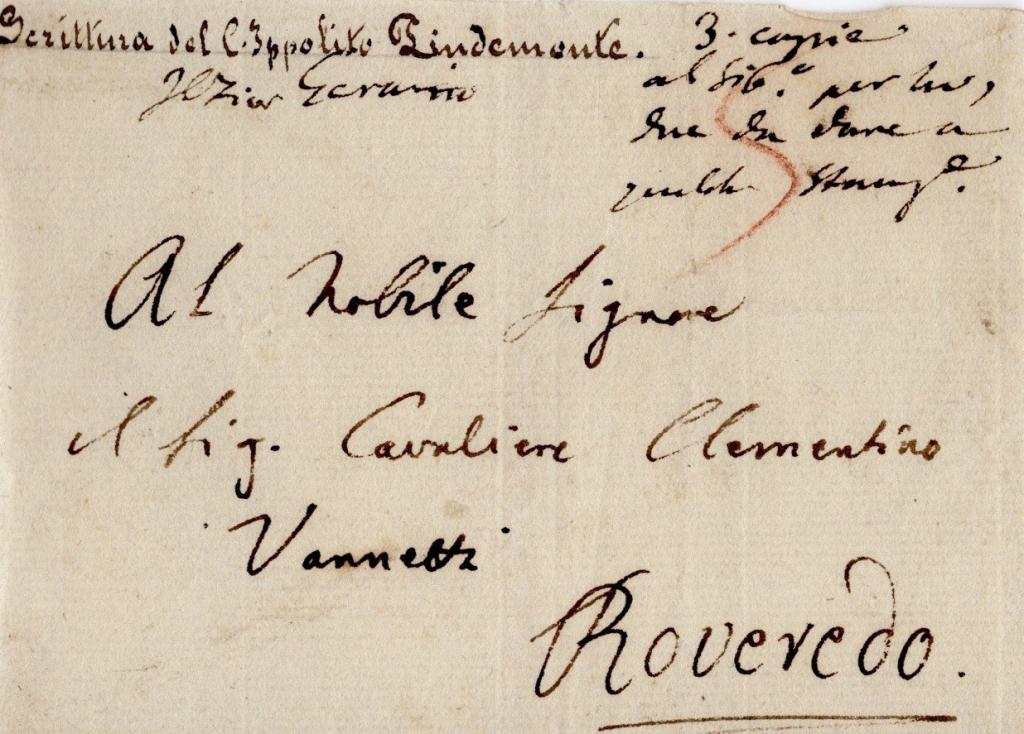 Scrittura del C. Ippolito Pindemonte.
3. copie
al Sib.º per lui,
due da dare a
Al Nobile Signore
il Sig. Cavaliere Clementino
Vannetti
Roveredo.